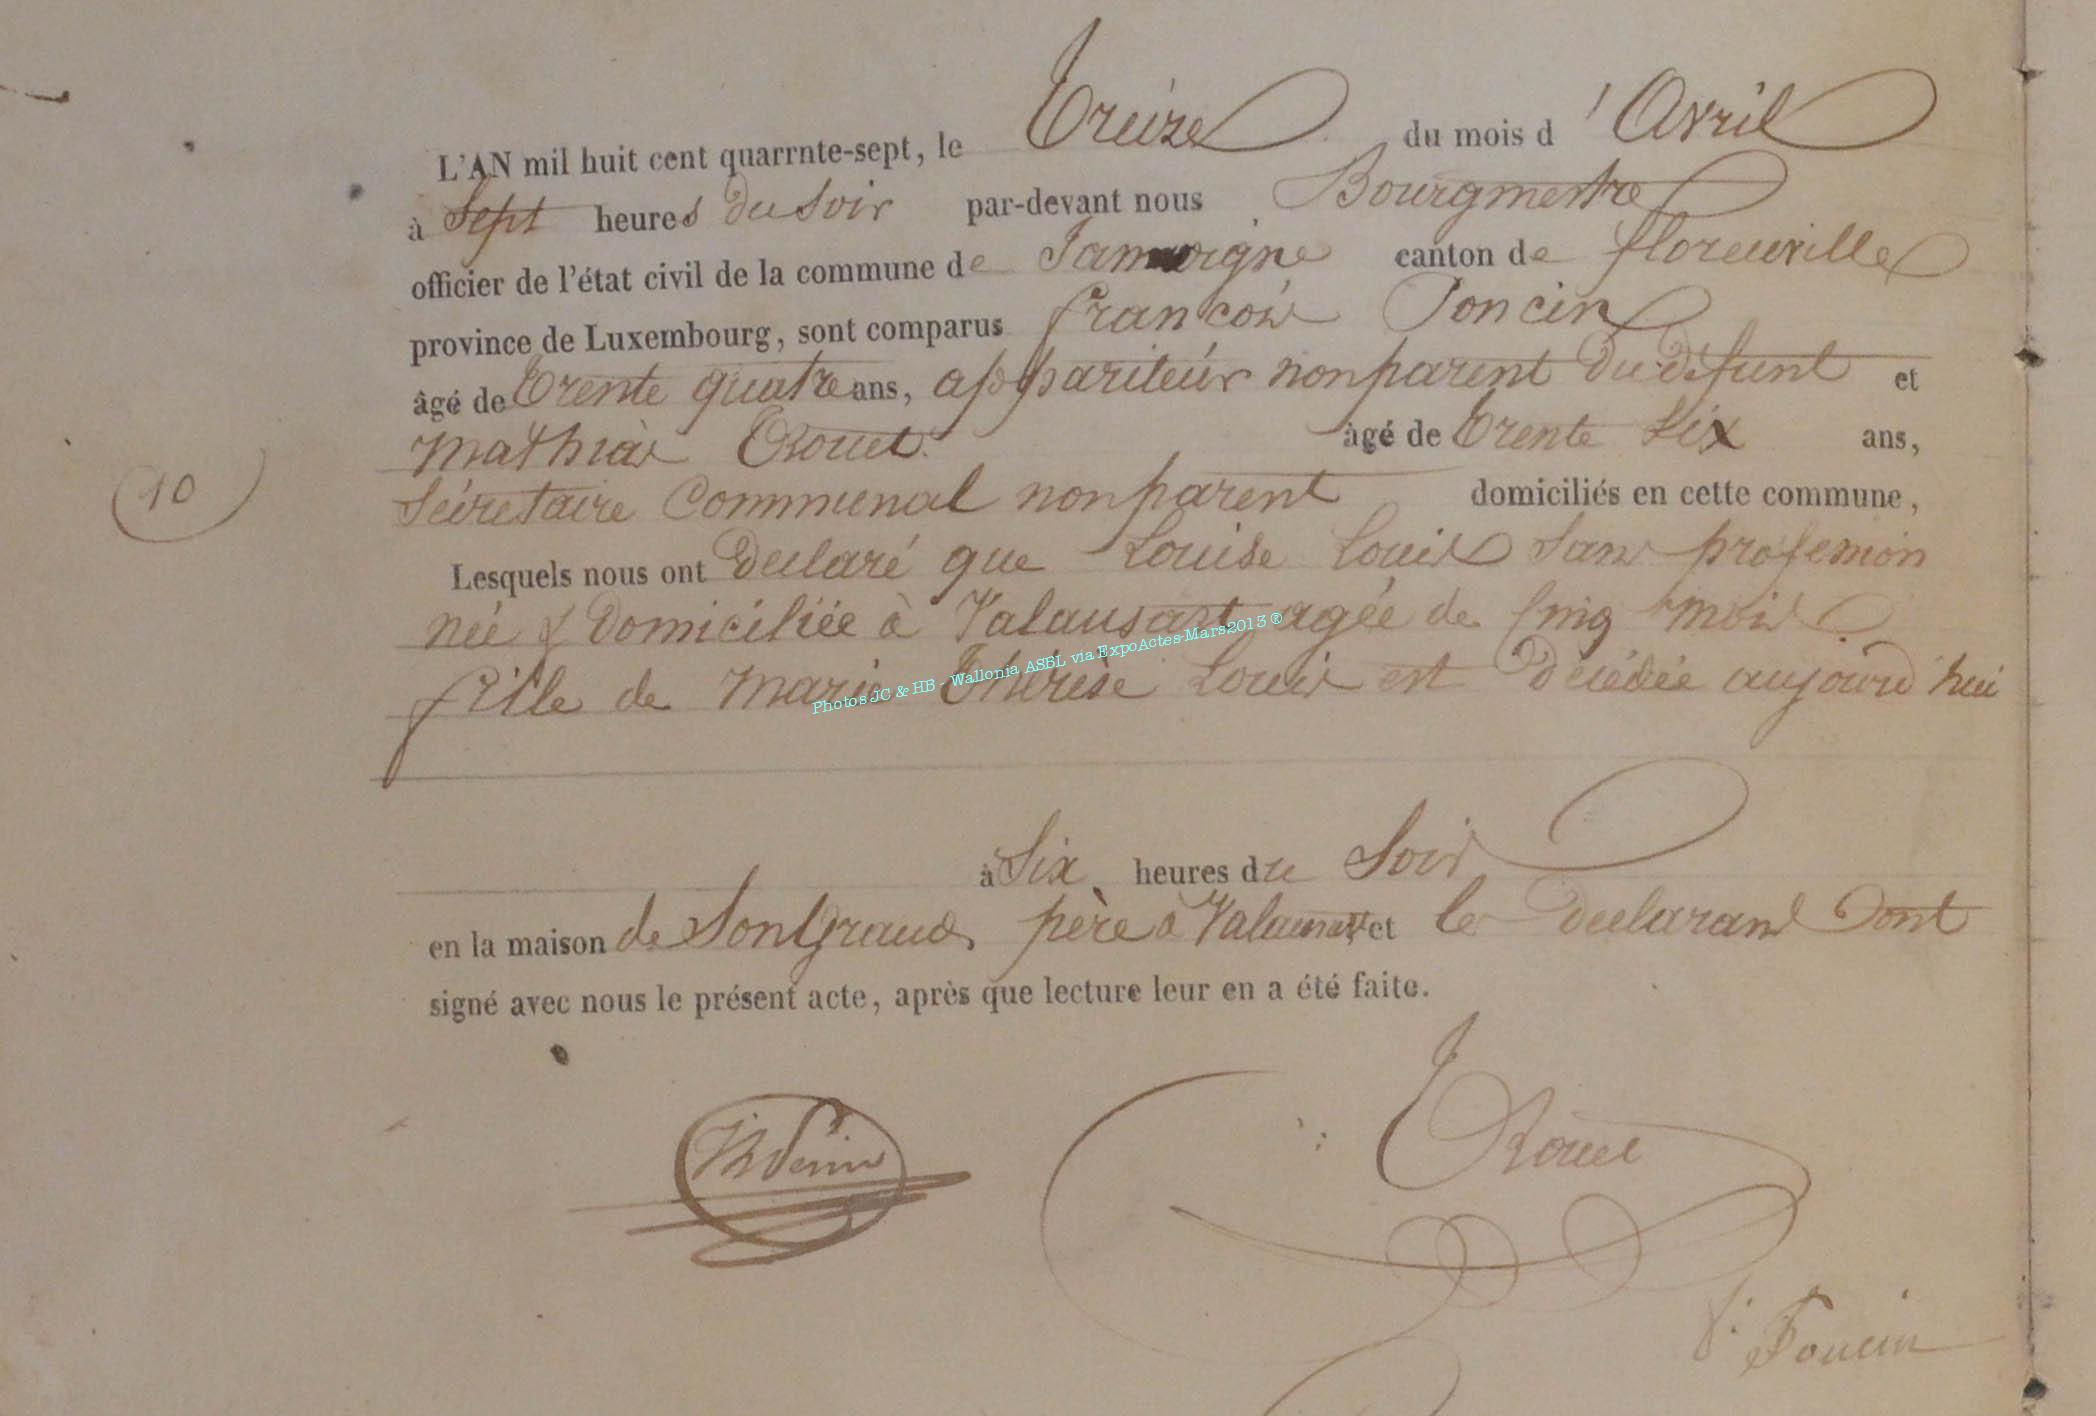 L'AN mil huit cent quarrnte-sept, le Treize du mois d'Avril
à Sept heures du Soir par-devant nous Bourgmestre
officier de l'état civil de la commune de Jamoigne canton de florenville
province de Luxembourg, sont comparus francois Poncin
âgé de Trente quatre ans, appariteur non parent du défunt et
Mathias âgé de Trente Six ans,
Sécretaire Communal non parent domiciliés en cette commune,
10
Lesquels nous ont declaré que Louise Louis Sans profession
née & domiciliée à Valansart agée de Cinq mois
fille de Marie Thérèse Louis est décédée aujourd'hui
Photos JC & HB - Wallonia ASBL via ExpoActes-Mars2013 ®
à Six heures du Soir
en la maison de Son Grand père à Valansart et les declarans ont
signé avec nous le présent acte, après que lecture leur en a été faite.